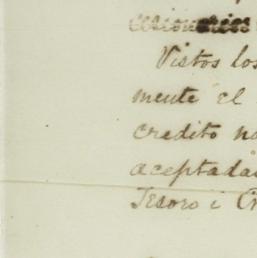 Vistos los
mente el
credito no
aceptadas
Tesoro i Cr